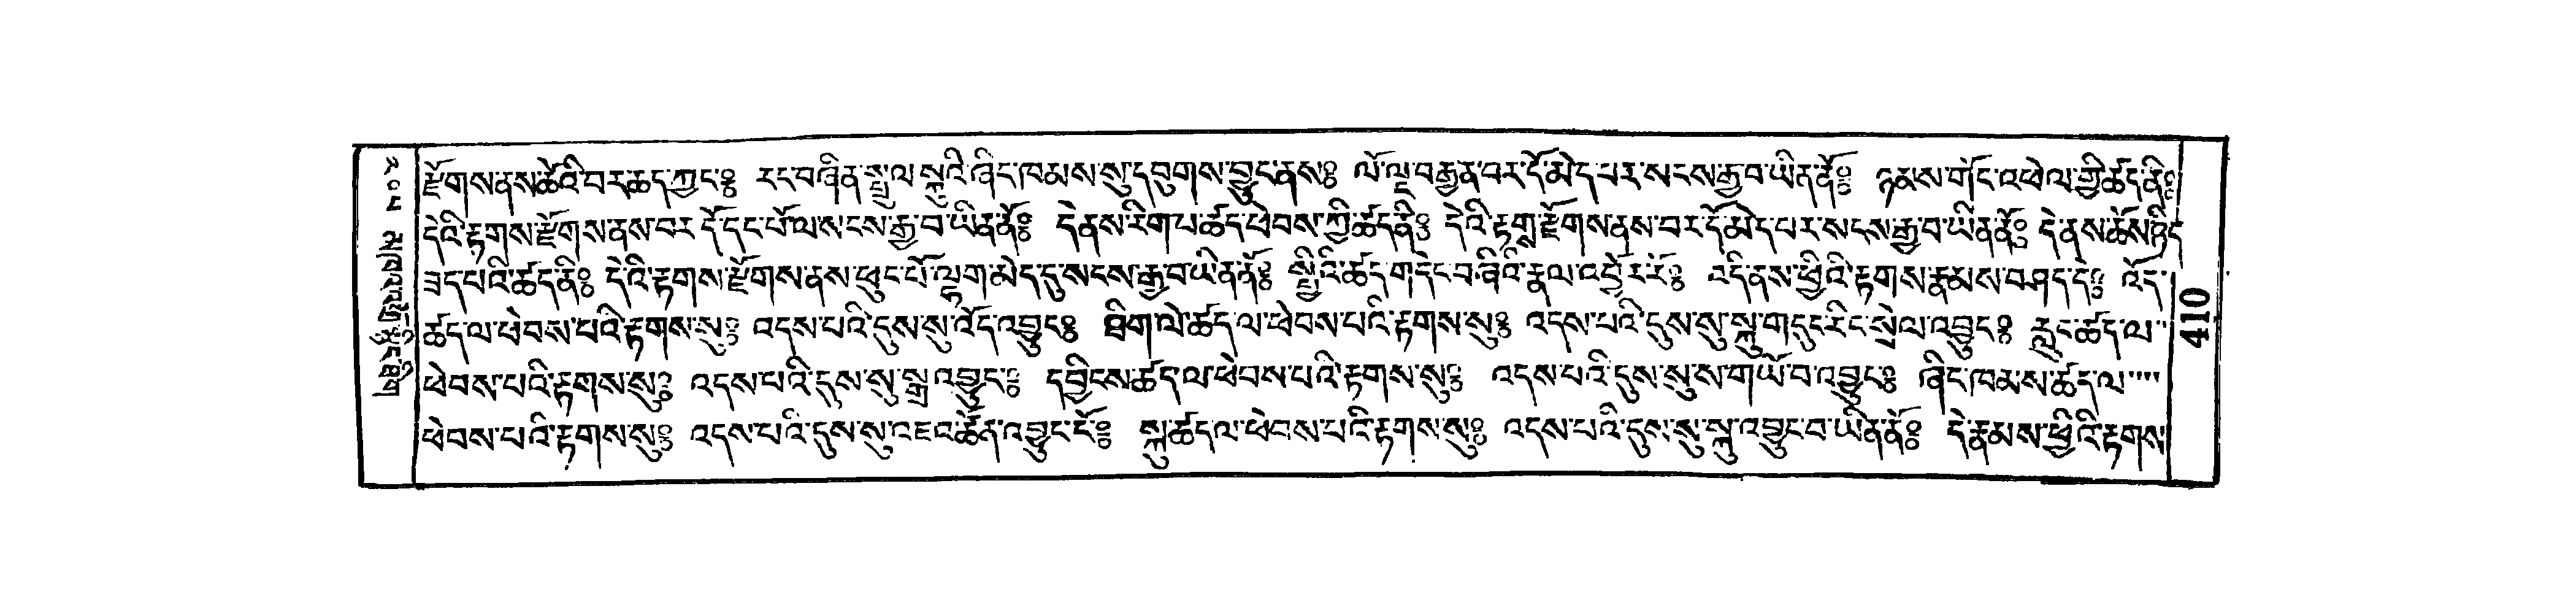 རྫོགས་ནས་ཚེའི་བར་ཆད་ཀྱང་༔ རང་བཞིན་སྤྲུལ་སྐུའི་ཞིང་ཁམས་སུ་དབུགས་བྱུང་ནས༔ ལོ་ལྔ་བརྒྱན་བར་དོ་མེད་པར་སངས་རྒྱ་བ་ཡིན་ནོ༔ ཉམས་གོང་འཕེལ་གྱི་ཚད་ནི༔
དེའི་རྟགས་རྫོགས་ནས་བར་དོ་དང་པོ་ལ་སངས་རྒྱ་བ་ཡིན་ནོ༔ དེ་ནས་རིག་པ་ཚད་ཕེབས་ཀྱི་ཚད་ནི༔ དེའི་རྟགས་རྫོགས་ནས་བར་དོ་མེད་པར་སངས་རྒྱ་བ་ཡིན་ནོ༔ དེ་ནས་ཆོས་ཉིད
ཟད་པའི་ཚད་ནི༔ དེའི་རྟགས་རྫོགས་ནས་ཕུང་པོ་ལྷག་མེད་དུ་སངས་རྒྱ་བ་ཡིན་ནོ༔ སྤྱིའི་ཚད་གདེང་བ་ཞིའི་རྣལ་འབྱོར་རོ༔ འདི་ནས་ཕྱིའི་རྟགས་རྣམས་བཤད་དེ༔ འོད་
ཚད་ལ་ཕེབས་པའི་རྟགས་སུ༔ འདས་པའི་དུས་སུ་འོད་འབྱུང༔ ཐིག་ལེ་ཚད་ལ་ཕེབས་པའི་རྟགས་སུ༔ འདས་པའི་དུས་སུ་སྐུ་གདུང་རིང་སྲེལ་འབྱུང༔ རླུང་ཚད་ལ་
ཕེབས་པའི་རྟགས་སུ༔ འདས་པའི་དུས་སུ་སྒྲ་འབྱུང་༔ དབྱིངས་ཚད་ལ་ཕེབས་པའི་རྟགས་སུ༔ འདས་པའི་དུས་སུ་ས་གཡོ་བ་འབྱུང༔ ཞིང་ཁམས་ཚད་ལ་
ཕེབས་པའི་རྟགས་སུ༔ འདས་པའི་དུས་སུ་འཇའ་ཚོན་འབྱུང་ངོ༔ སྐུ་ཚད་ལ་ཕེབས་པའི་རྟགས་སུ༔ འདས་པའི་དུས་སུ་སྐུ་འབྱུང་བ་ཡིན་ནོ༔ དེ་རྣམས་ཕྱིའི་རྟགས་
410